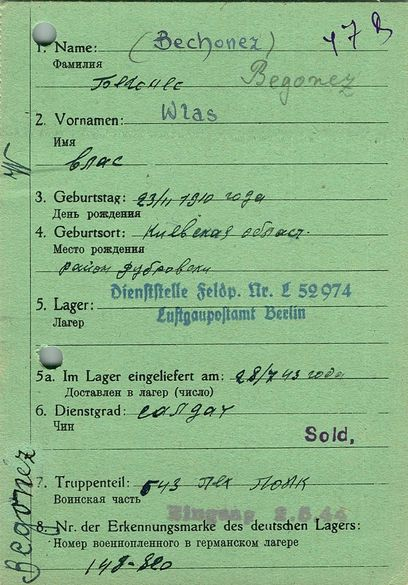 (Bechonez)
1. Name:
Фамилия
Begonez
2. Vornamen: Wlas
Имя
влас
3. Geburtstag: 23/II 1910 года
День рождения
4. Geburtsort: Киевская област.
Место рождения
район дубровски
Dienststelle Feldp. Nr. L 52974
Luftgaupostamt Berlin
5. Lager:
Лагер
5a. Im Lager eingeliefert am: 28/7 43 года
Доставлен в лагер (число)
6. Dienstgrad: салдат
Чин
Sold,
7. Truppenteil: 543 пех полк
Воинская часть
Eingang 2.8.44
8. Nr. der Erkennungsmarke des deutschen Lagers:
Номер военнопленного в германском лагере
Begonez